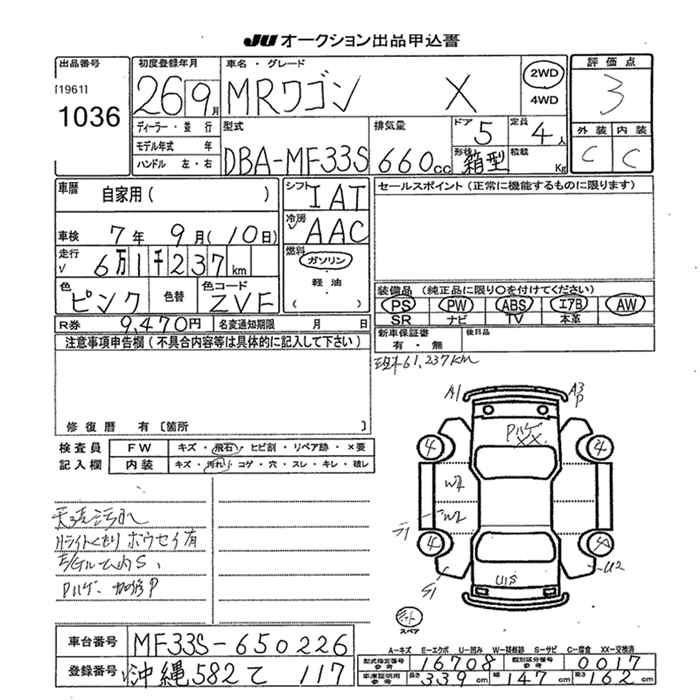 JU オークション出品申込書
出品番号
[1961]
1036
初度登録年月
26 9月
車名・グレード
MRワゴン X
2WD
4WD
評価点
3
外装 内装
C C
ディーラー・並行
モデル年式 年
ハンドル 左・右
型式
DBA-MF33S
排気量
660cc
ドア 5
定員 4人
形状 箱型
積載 Kg
車歴 自家用( )
シフト IAT
セールスポイント(正常に機能するものに限ります)
車検 7年 9月(10日)
冷房 AAC
走行 6万1千237km
燃料
ガソリン
・
軽油
・
( )
色 ピンク
色替
色コード ZVF
装備品 (純正品に限り○を付けてください)
PS PW ABS エアB AW
SR ナビ TV 本革
R券 9,470円
名変通知期限 月 日
新車保証書
有・無
後日品
注意事項申告欄(不具合内容等は具体的に記入して下さい)
61,237km
修復歴 有〔箇所 〕
検査員
記入欄
FW キズ・飛石・ヒビ割・リペア跡・×要
内装 キズ・汚れ・コゲ・穴・スレ・キレ・破レ
A1
A3
P
Pハゲ
XX
4
4
W2
4
U2
S1
U1S
スペア
ボウセイ有
車台番号 MF33S-650226
登録番号 沖縄582て 117
A-キズ E-エクボ U-凹み W-補修跡 S-サビ C-腐食 XX-交換済
型式指定番号 16708
類別区分番号 0017
参考
車庫証明用
参考
長さ 339cm
幅 147cm
高さ 162cm